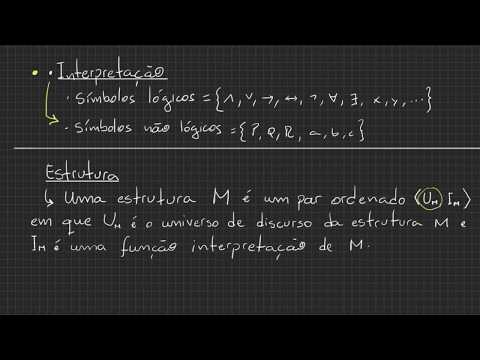 • Interpretação
• Símbolos lógicos = {∧, ∨, →, ↔, ¬, ∀, ∃, x, y, ...}
• Símbolos não lógicos = {P, Q, R, a, b, c}
Estrutura
↳ Uma estrutura M é um par ordenado ⟨U_M, I_M⟩
em que U_M é o universo de discurso da estrutura M e
I_M é uma função interpretação de M.